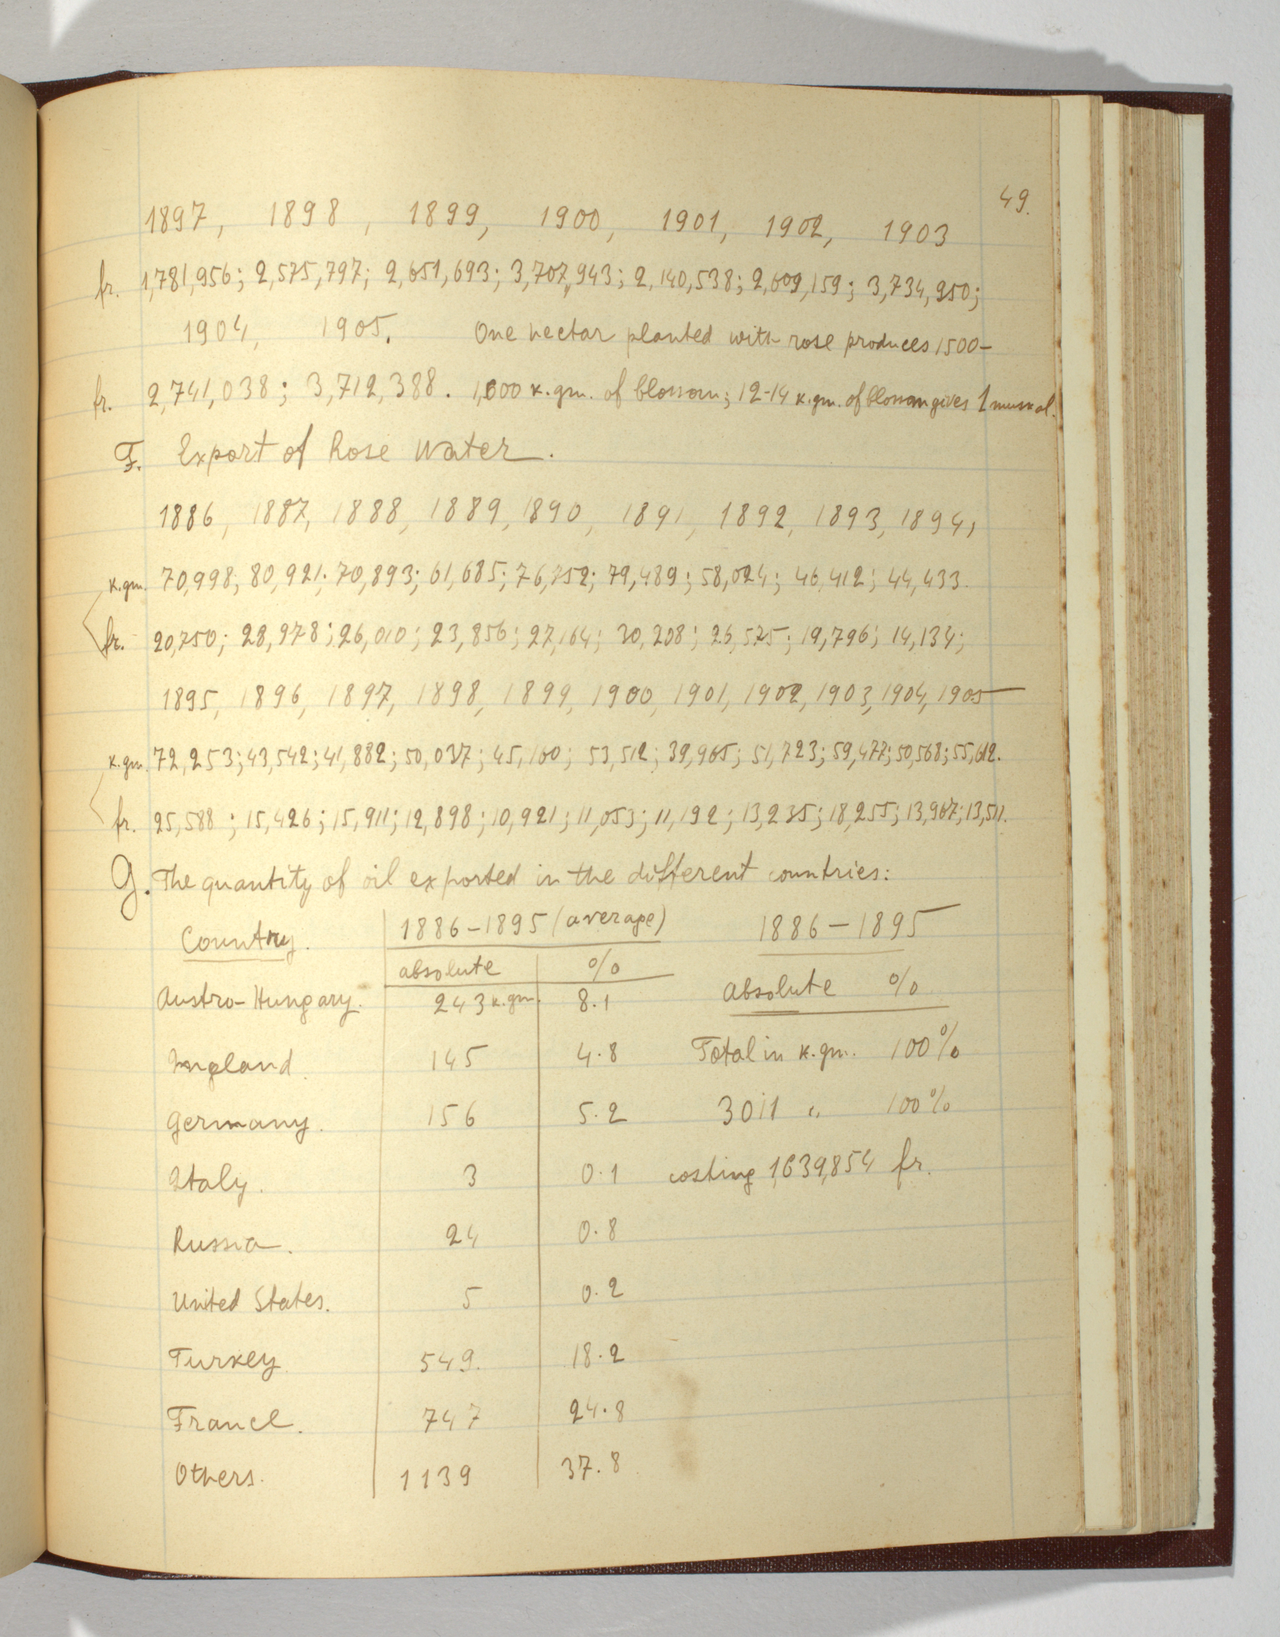 49.
1897, 1898, 1899, 1900, 1901, 1902, 1903
fr. 1,781,956; 2,575,797; 2,651,693; 3,707,943; 2,140,538; 2,609,159; 3,734,950;
1904, 1905. One hectar planted with rose produces 1500-
fr. 2,741,038; 3,712,388. 1,600 k.gm. of blossom; 12-14 k.gm. of blossom gives 1 muskal.
F. Export of Rose Water.
1886, 1887, 1888, 1889, 1890, 1891, 1892, 1893, 1894,
k.gm. 70,998; 80,921; 70,893; 61,685; 76,752; 79,489; 58,024; 46,412; 44,433.
fr. 20,750; 28,978; 26,010; 23,856; 27,164; 30,208; 26,575; 19,796; 14,134;
1895, 1896, 1897, 1898, 1899, 1900, 1901, 1902, 1903, 1904, 1905
k.gm. 72,253; 43,542; 41,882; 50,037; 45,100; 53,512; 39,965; 51,723; 59,477; 50,568; 55,612.
fr. 25,588; 15,426; 15,911; 12,898; 10,921; 11,053; 11,192; 13,235; 18,255; 13,967; 13,511.
G. The quantity of oil exported in the different countries:
Country. 1886-1895 (average) 1886-1895
absolute % absolute %
Austro-Hungary. 243 k.gm. 8.1
England. 145 4.8 Total in k.gm. 100%
Germany. 156 5.2 3011 " 100%
Italy. 3 0.1 costing 1,639,854 fr.
Russia. 24 0.8
United States. 5 0.2
Turkey 549. 18.2
France. 747 24.8
Others. 1139 37.8